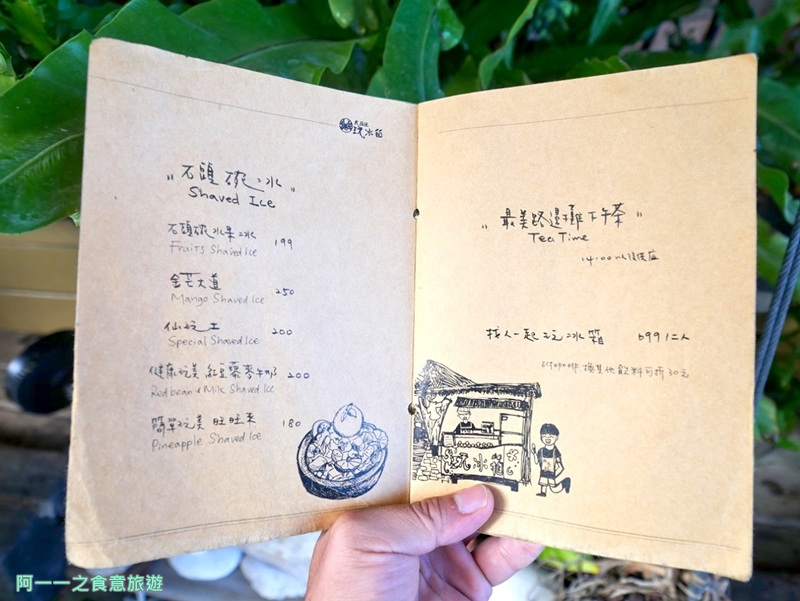 玩冰箱
"石頭碗冰"
Shaved Ice
石頭碗水果冰 199
Fruits Shaved Ice
金芒大道 250
Mango Shaved Ice
仙玩土 200
Special Shaved Ice
健康玩美 紅豆薏麥牛奶 200
Red bean & Milk Shaved Ice
簡單玩美 旺旺來 180
Pineapple Shaved Ice
"最美路邊攤下午茶"
Tea Time
14:00以後供應
找人一起玩冰箱 699/二人
附咖啡.換其他飲料可折30元
玩冰箱
阿一一之食意旅遊